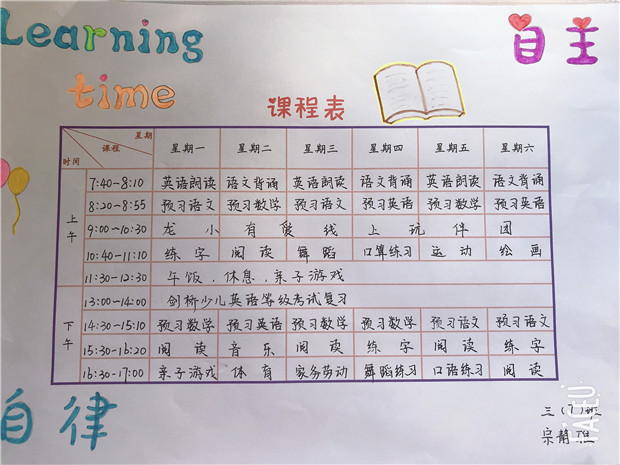 Learning
time
自主
课程表
星期 课程 时间 星期一 星期二 星期三 星期四 星期五 星期六
上午
7:40~8:10 英语朗读 语文背诵 英语朗读 语文背诵 英语朗读 语文背诵
8:20~8:55 预习语文 预习数学 预习语文 预习英语 预习数学 预习英语
9:00~10:30 龙小有爱线上玩伴团
10:40~11:10 练字 阅读 舞蹈 口算练习 运动 绘画
11:30~12:30 午饭、休息、亲子游戏
下午
13:00~14:00 剑桥少儿英语等级考试复习
14:30~15:10 预习数学 预习英语 预习数学 预习数学 预习语文 预习语文
15:30~16:20 阅读 音乐 阅读 练字 阅读 练字
16:30~17:00 亲子游戏 体育 家务劳动 舞蹈练习 口语练习 阅读
自律
三(7)班
宗静
FACEU